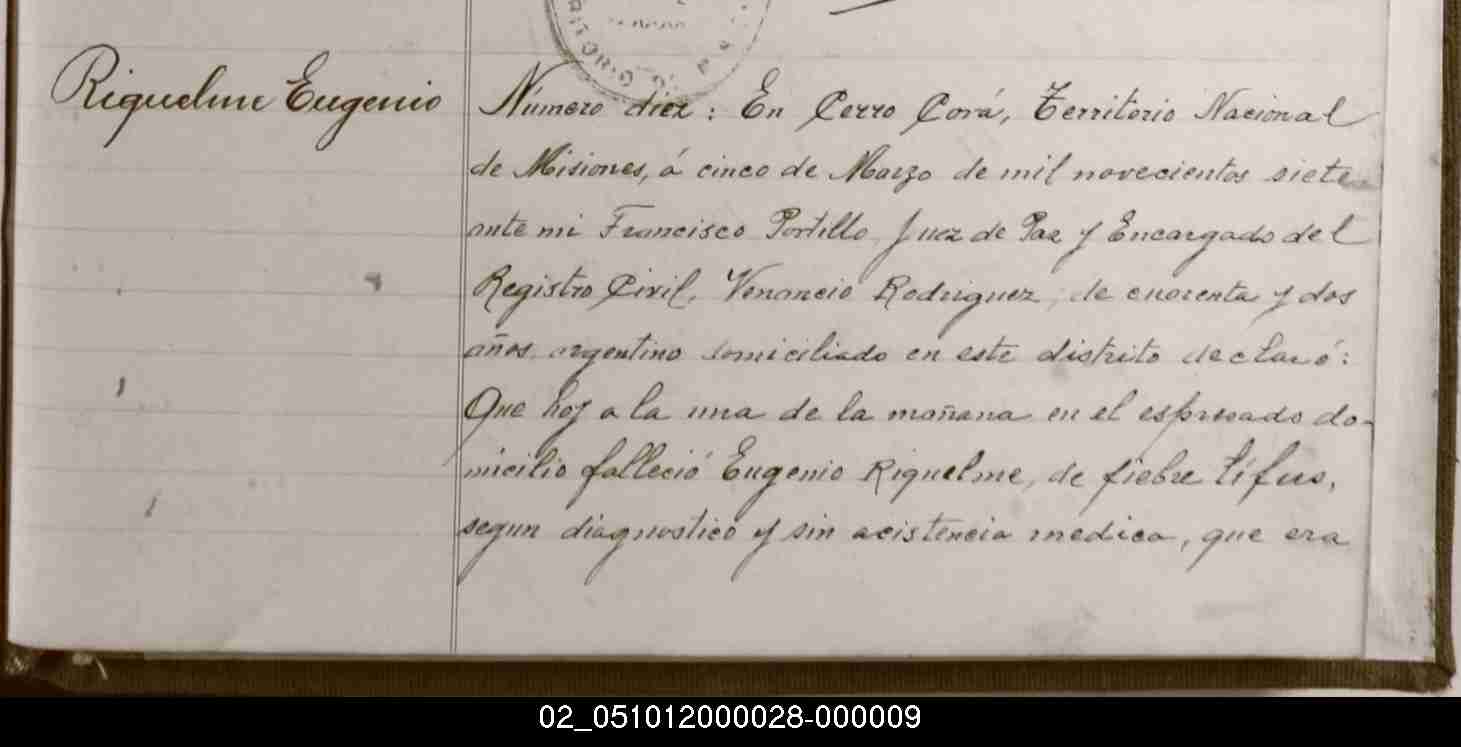 Riquelme Eugenio
Número diez: En Cerro Corá, Territorio Nacional
de Misiones, á cinco de Marzo de mil novecientos siete
ante mi Francisco Portillo Juez de Paz y Encargado del
Registro Civil, Venancio Rodriguez, de cuarenta y dos
años, argentino domiciliado en este distrito declaró:
Que hoy a la una de la mañana en el espresado do-
micilio falleció Eugenio Riquelme, de fiebre tífus,
segun diagnostico y sin acistencia medica, que era
02_051012000028-000009